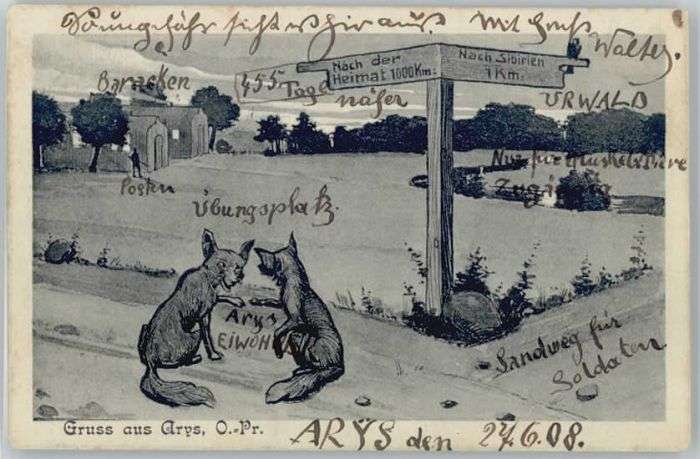 So ungefähr sieht es hier aus. Mit Gruß
Walter.
Nach der
Heimat 1000 Km:
Nach Sibirien
1 Km.
Baracken
455 Tage
näher
URWALD
Nur für
Zugängig
Posten
Übungsplatz.
Arys
EIWOHNER
Sandweg für
Soldaten
Gruss aus Arys, O.-Pr.
ARYS den 24.6.08.